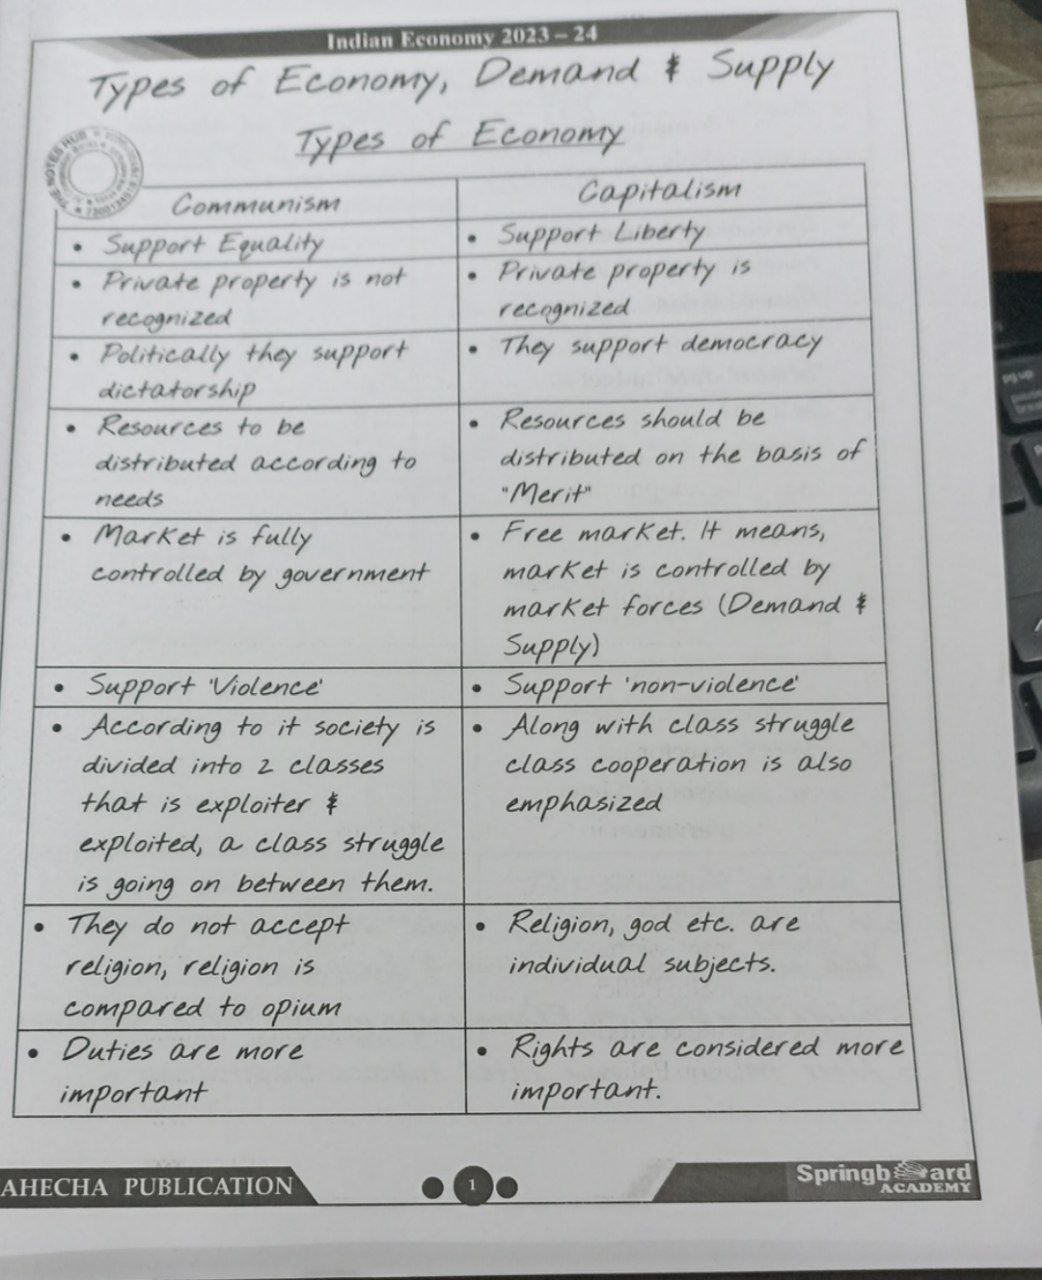 Indian Economy 2023 – 24
Types of Economy, Demand & Supply
Types of Economy
THE NOTES HUB
Communism
Capitalism
• Support Equality
• Support Liberty
• Private property is not
recognized
• Private property is
recognized
• Politically they support
dictatorship
• They support democracy
• Resources to be
distributed according to
needs
• Resources should be
distributed on the basis of
"Merit"
• Market is fully
controlled by government
• Free market. It means,
market is controlled by
market forces (Demand &
Supply)
• Support 'Violence'
• Support 'non-violence'
• According to it society is
divided into 2 classes
that is exploiter &
exploited, a class struggle
is going on between them.
• Along with class struggle
class cooperation is also
emphasized
• They do not accept
religion, religion is
compared to opium
• Religion, god etc. are
individual subjects.
• Duties are more
important
• Rights are considered more
important.
AHECHA PUBLICATION
1
Springboard
ACADEMY
pg up